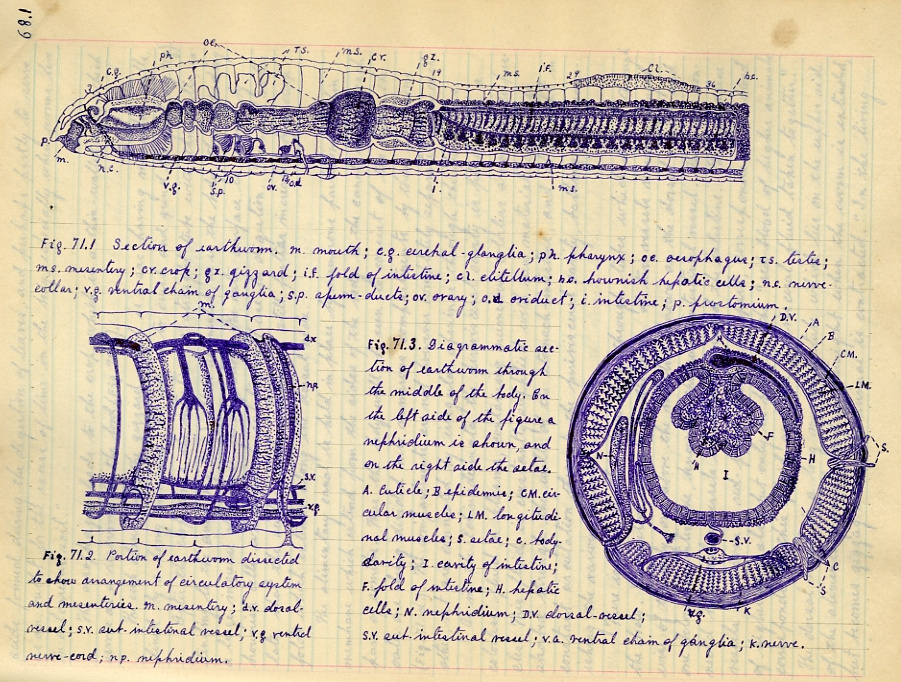 1.89
oe.
ph
T.S.
m.s.
cr.
gz.
c.g.
19
m.s.
i.f.
29
cl.
36
h.c.
3
p.
m.
n.c.
v.g.
s.p.
10
ov.
o.d
i.
m.s.
Fig. 71.1 Section of earthworm. m. mouth; c.g. cerebal-glanglia; ph. pharynx; oe. oesophagus; T.S. testes;
m.s. mesentery; cr. crop; gz. gizzard; i.f. fold of intestine; cl. clitellum; h.c. hownish hepatic cells; n.c. nerve-
collar; v.g. ventral chain of ganglia; s.p. sperm-ducts; ov. ovary; o.d. oviduct; i. intestine; p. prostomium.
m.
d.v
n.p.
s.v.
v.g.
Fig. 71.2. Portion of earthworm dissected
to show arrangement of circulatory system
and mesenteries. m. mesentery; d.v. dorsal-
vessel; s.v. sub-intestinal vessel; v.g ventral
nerve-cord; n.p. nephridium.
Fig. 71.3. Diagrammatic sec-
tion of earthworm through
the middle of the body. On
the left side of the figure a
nephridium is shown, and
on the right side the setae.
A. cuticle; B epidemis; CM. cir-
cular muscles; L.M. longitudi-
nal muscles; S. setae; c. body-
clavity; I. cavity of intestine;
F. fold of intestine; H. hepatic
cells; N. nephridium; D.V. dorsal-vessel;
S.V. sub-intestinal vessel; v.a. ventral chain of ganglia; K. nerve.
D.V.
A
B
CM.
LM.
S.
F
N
H
H
I
S.V.
C
S
v.g.
K